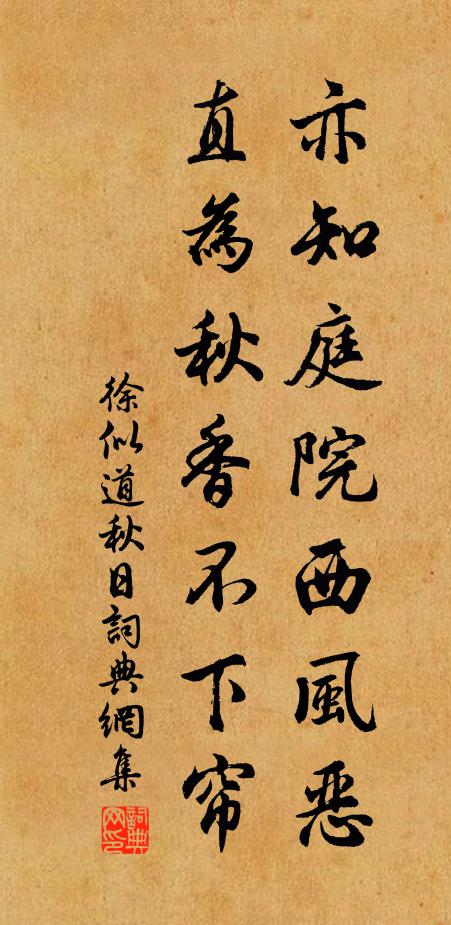 亦知庭院西風恶
直為秋香不下帘
徐似道秋日詞典網集
詞典网印